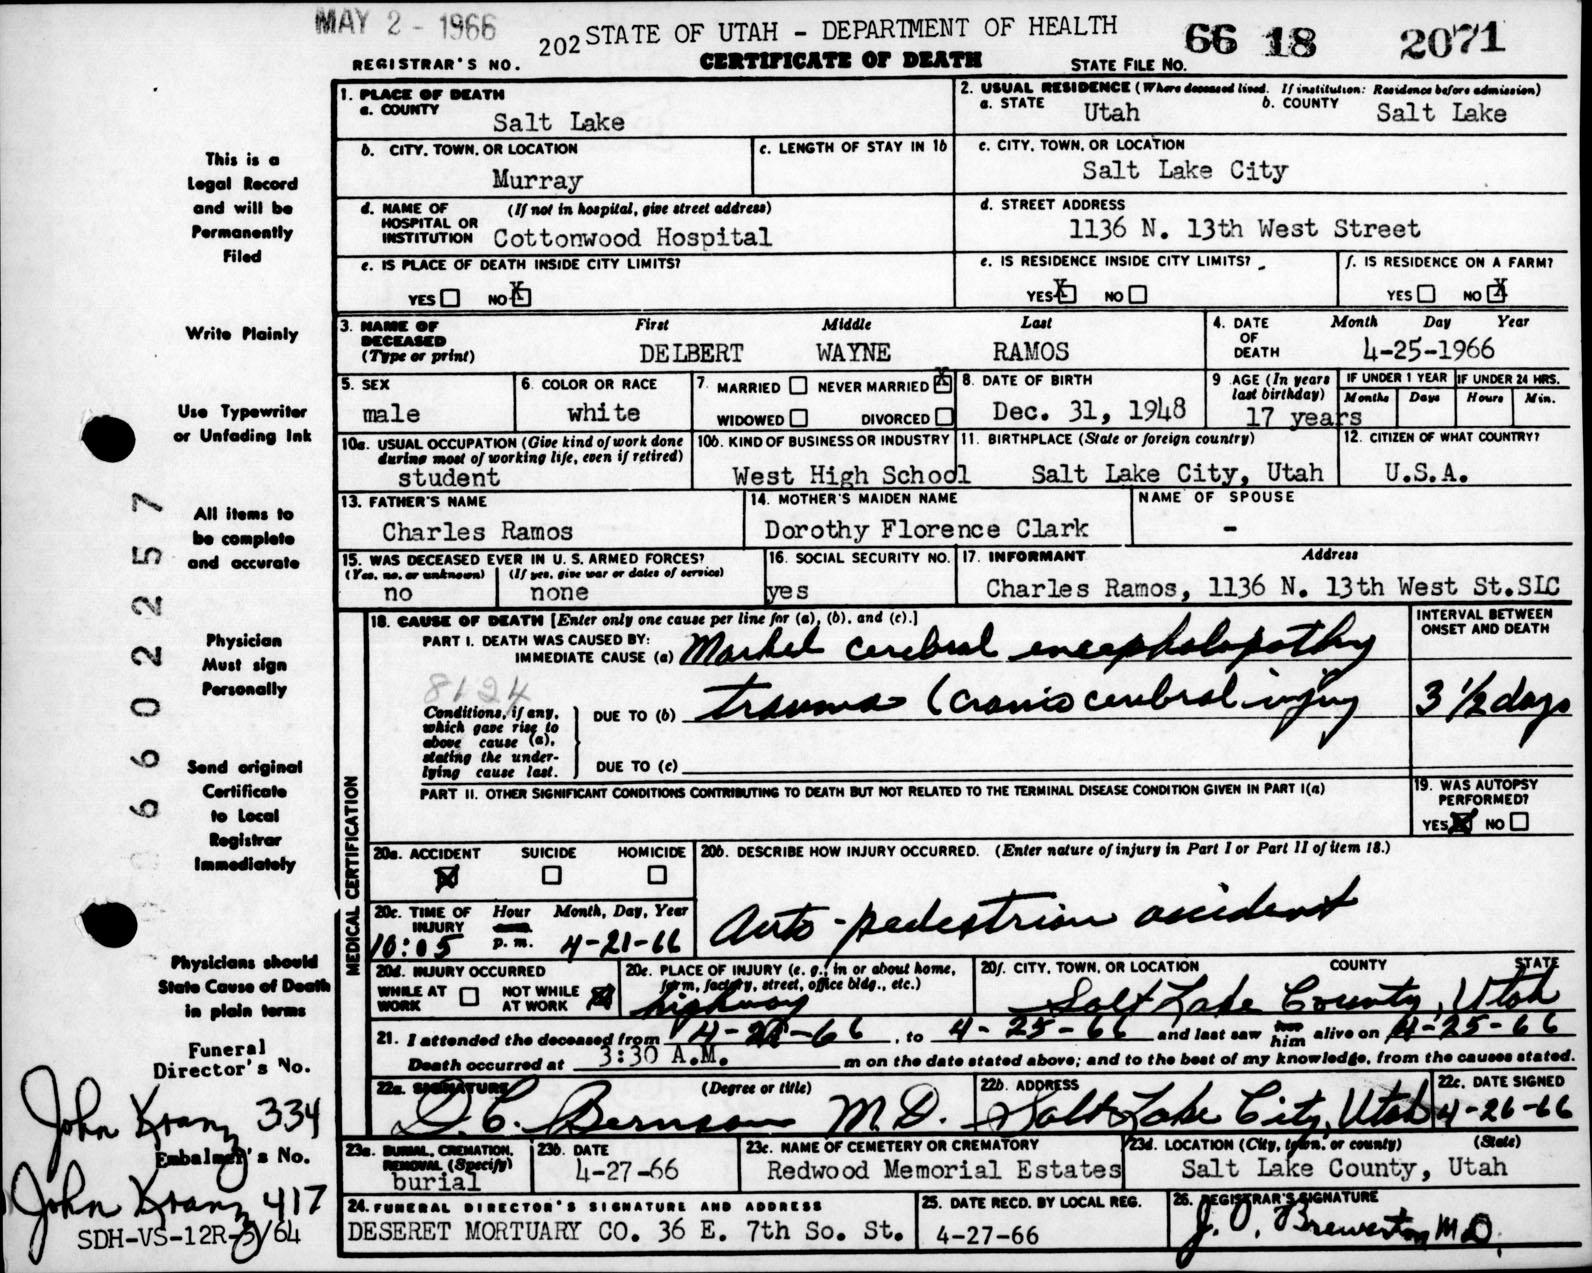 MAY 2 - 1966
202 STATE OF UTAH - DEPARTMENT OF HEALTH 66 18 2071
REGISTRAR'S NO. CERTIFICATE OF DEATH STATE FILE NO.
This is a
Legal Record
and will be
Permanently
Filed
Write Plainly
Use Typewriter
or Unfading Ink
All items to
be complete
and accurate
Physician
Must sign
Personally
Send original
Certificate
to Local
Registrar
Immediately
Physicians should
State Cause of Death
in plain terms
Funeral
Director's No.
John Kranz 334
Embalmer's No.
John Kranz 417
SDH-VS-12R-3/64
6602257
1. PLACE OF DEATH
a. COUNTY
Salt Lake
2. USUAL RESIDENCE (Where deceased lived. If institution: Residence before admission)
a. STATE Utah b. COUNTY Salt Lake
b. CITY, TOWN, OR LOCATION
Murray
c. LENGTH OF STAY IN 1b
c. CITY, TOWN, OR LOCATION
Salt Lake City
d. NAME OF (If not in hospital, give street address)
HOSPITAL OR
INSTITUTION Cottonwood Hospital
d. STREET ADDRESS
1136 N. 13th West Street
e. IS PLACE OF DEATH INSIDE CITY LIMITS?
YES NO X
e. IS RESIDENCE INSIDE CITY LIMITS?
YES X NO
f. IS RESIDENCE ON A FARM?
YES NO X
3. NAME OF First Middle Last
DECEASED
(Type or print) DELBERT WAYNE RAMOS
4. DATE Month Day Year
OF
DEATH 4-25-1966
5. SEX
male
6. COLOR OR RACE
white
7. MARRIED NEVER MARRIED X
WIDOWED DIVORCED
8. DATE OF BIRTH
Dec. 31, 1948
9 AGE (In years
last birthday)
17 years
IF UNDER 1 YEAR IF UNDER 24 HRS.
Months Days Hours Min.
10a. USUAL OCCUPATION (Give kind of work done
during most of working life, even if retired)
student
10b. KIND OF BUSINESS OR INDUSTRY
West High School
11. BIRTHPLACE (State or foreign country)
Salt Lake City, Utah
12. CITIZEN OF WHAT COUNTRY?
U.S.A.
13. FATHER'S NAME
Charles Ramos
14. MOTHER'S MAIDEN NAME
Dorothy Florence Clark
NAME OF SPOUSE
-
15. WAS DECEASED EVER IN U. S. ARMED FORCES?
(Yes, no, or unknown) (If yes, give war or dates of service)
no none
16. SOCIAL SECURITY NO.
yes
17. INFORMANT Address
Charles Ramos, 1136 N. 13th West St.SLC
MEDICAL CERTIFICATION
18. CAUSE OF DEATH [Enter only one cause per line for (a), (b), and (c).]
INTERVAL BETWEEN
ONSET AND DEATH
PART I. DEATH WAS CAUSED BY:
IMMEDIATE CAUSE (a) Marked cerebral encephalopathy
8124
Conditions, if any,
which gave rise to
above cause (a),
stating the under-
lying cause last.
DUE TO (b) trauma (cranio cerebral injury 3 1/2 days
DUE TO (c)
PART II. OTHER SIGNIFICANT CONDITIONS CONTRIBUTING TO DEATH BUT NOT RELATED TO THE TERMINAL DISEASE CONDITION GIVEN IN PART I(a)
19. WAS AUTOPSY
PERFORMED?
YES X NO
20a. ACCIDENT SUICIDE HOMICIDE
X
20b. DESCRIBE HOW INJURY OCCURRED. (Enter nature of injury in Part I or Part II of item 18.)
Auto-pedestrian accident
20c. TIME OF Hour Month, Day, Year
INJURY
10:05 p.m. 4-21-66
20d. INJURY OCCURRED
WHILE AT WORK NOT WHILE AT WORK X
20e. PLACE OF INJURY (e. g., in or about home,
farm, factory, street, office bldg., etc.)
highway
20f. CITY, TOWN, OR LOCATION COUNTY STATE
Salt Lake County, Utah
21. I attended the deceased from 4-21-66, to 4-25-66 and last saw him alive on 4-25-66
Death occurred at 3:30 A.M. m on the date stated above; and to the best of my knowledge, from the causes stated.
22a. SIGNATURE (Degree or title)
Bernson M.D.
22b. ADDRESS
Salt Lake City, Utah
22c. DATE SIGNED
4-26-66
23a. BURIAL, CREMATION,
REMOVAL (Specify)
burial
23b. DATE
4-27-66
23c. NAME OF CEMETERY OR CREMATORY
Redwood Memorial Estates
23d. LOCATION (City, town, or county) (State)
Salt Lake County, Utah
24. FUNERAL DIRECTOR'S SIGNATURE AND ADDRESS
DESERET MORTUARY CO. 36 E. 7th So. St.
25. DATE RECD. BY LOCAL REG.
4-27-66
26. REGISTRAR'S SIGNATURE
J. O. Brewerton M D.